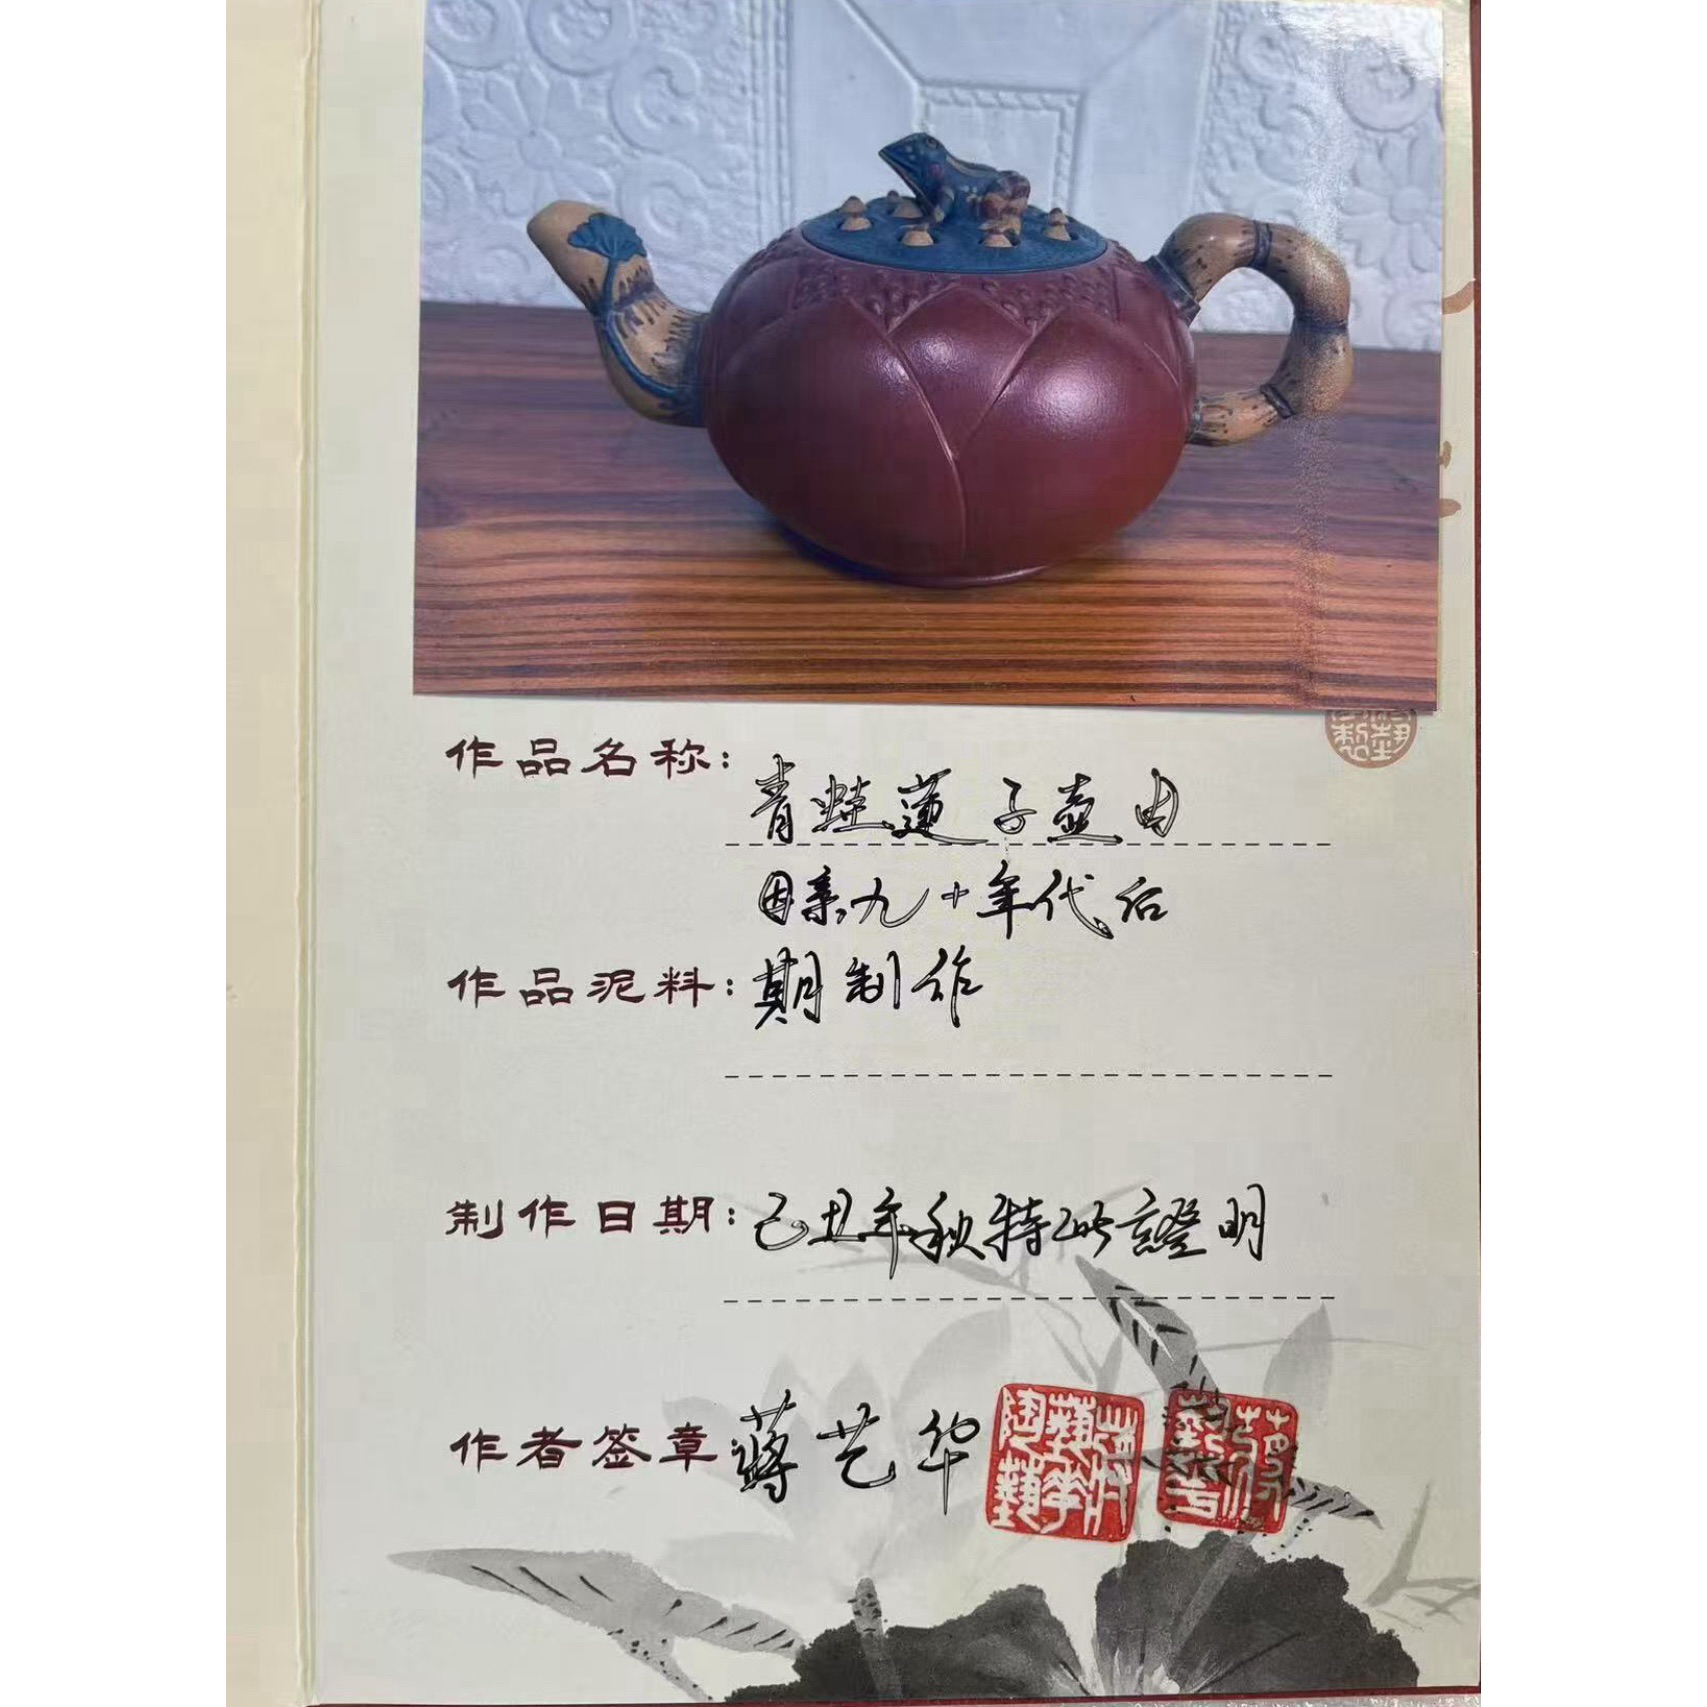 作品名称：
青蛙莲子壶由
母亲九十年代后
作品泥料：期制作
制作日期：己丑年秋特此證明
作者签章 蒋艺华